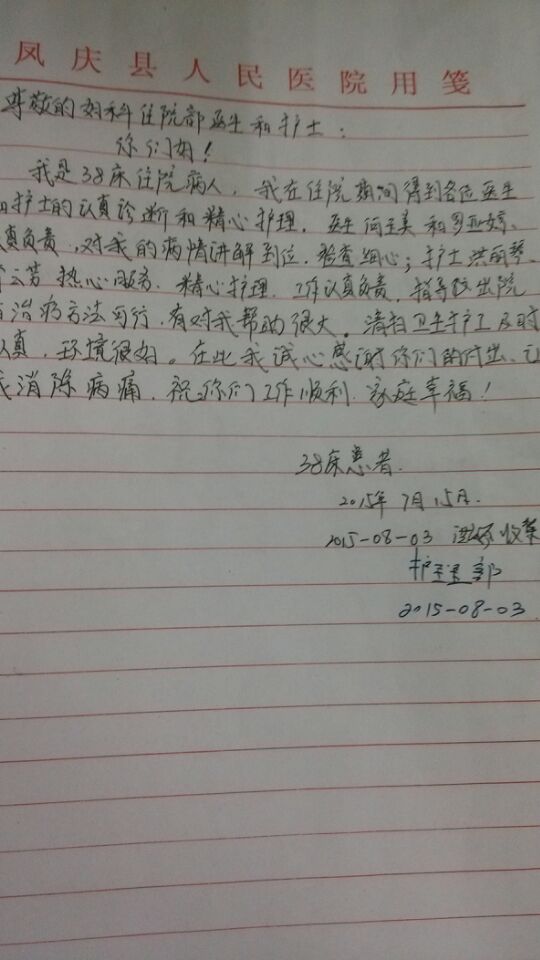 凤庆县人民医院用笺
尊敬的妇科住院部医生和护士：
你们好！
我是38床住院病人，我在住院期间得到各位医生
和护士的认真诊断和精心护理，医生何玉美和罗亚婷，
认真负责，对我的病情讲解到位，检查细心；护士洪丽琴、
云芳热心服务，精心护理，工作认真负责，指导说出院
治疗方法可行，有对我帮助很大。清扫卫生护工及时
认真，环境很好。在此我诚心感谢你们的付出，让
我消除病痛，祝你们工作顺利，家庭幸福！
38床患者.
2015年7月15日.
2015-08-03 收集
护理部
2015-08-03